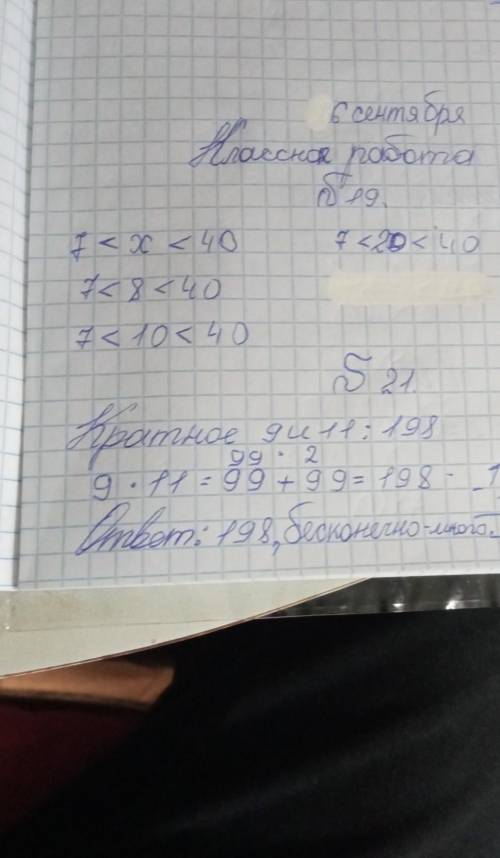 6 сентября
Классная работа
№ 19.
7 < x < 40
7 < 20 < 40
7 < 8 < 40
7 < 10 < 40
№ 21.
Кратное 9 и 11 : 198
99 · 2
9 · 11 = 99 + 99 = 198
Ответ: 198, бесконечно-много.